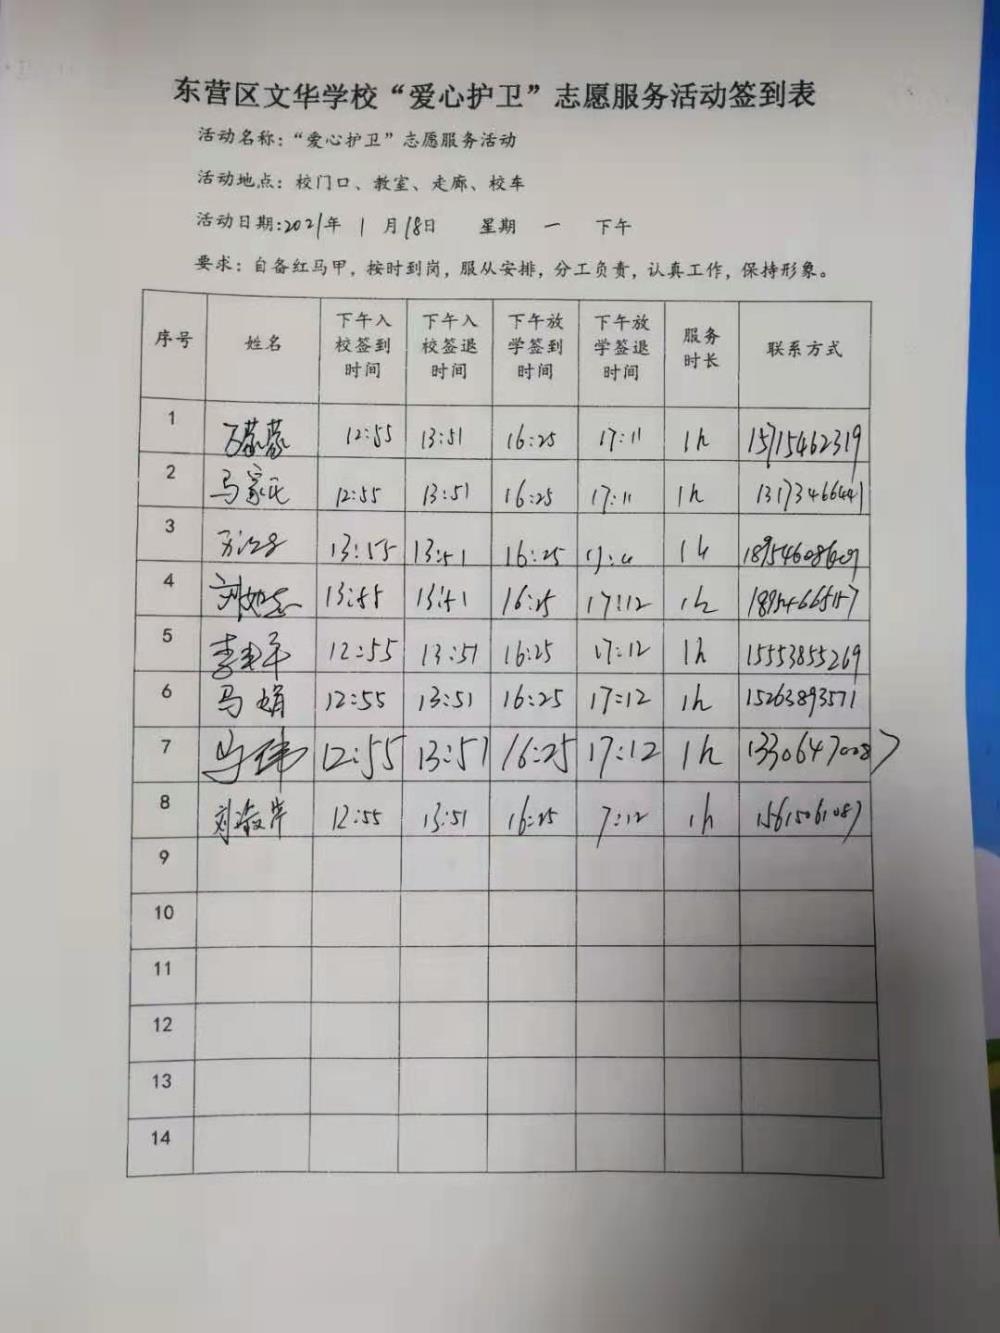 东营区文华学校“爱心护卫”志愿服务活动签到表
活动名称：“爱心护卫”志愿服务活动
活动地点：校门口、教室、走廊、校车
活动日期:2021年 1 月18日 星期 一 下午
要求：自备红马甲，按时到岗，服从安排，分工负责，认真工作，保持形象。
序号 姓名 下午入校签到时间 下午入校签退时间 下午放学签到时间 下午放学签退时间 服务时长 联系方式
1 12:55 13:51 16:25 17:11 1h 15715462319
2 12:55 13:51 16:25 17:11 1h 13173466441
3 13:55 13:51 16:25 1h
4 13:55 13:51 16:25 17:12 1h
5 12:55 13:51 16:25 17:12 1h 15553855269
6 马娟 12:55 13:51 16:25 17:12 1h 15263893571
7 马伟 12:55 13:51 16:25 17:12 1h 13306470087
8 12:55 13:51 16:25 7:12 1h 15615061087
9
10
11
12
13
14